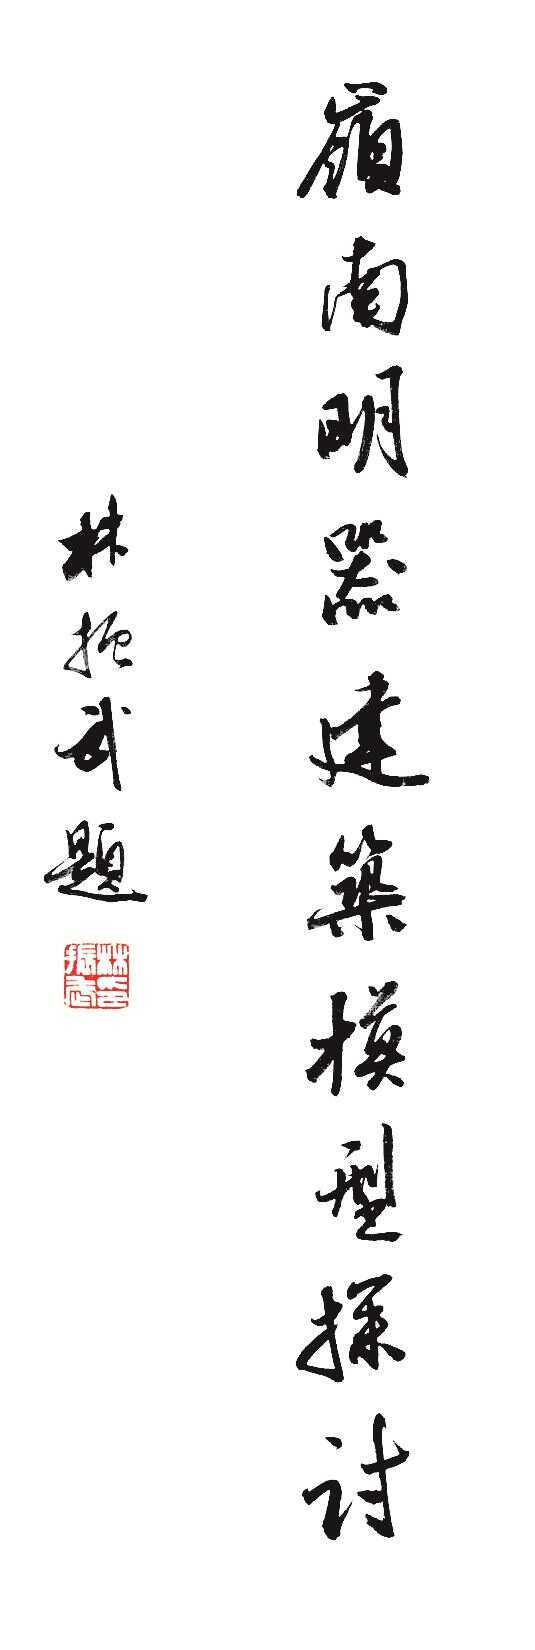 嶺南明器建築模型探討
林振武題
林振武印